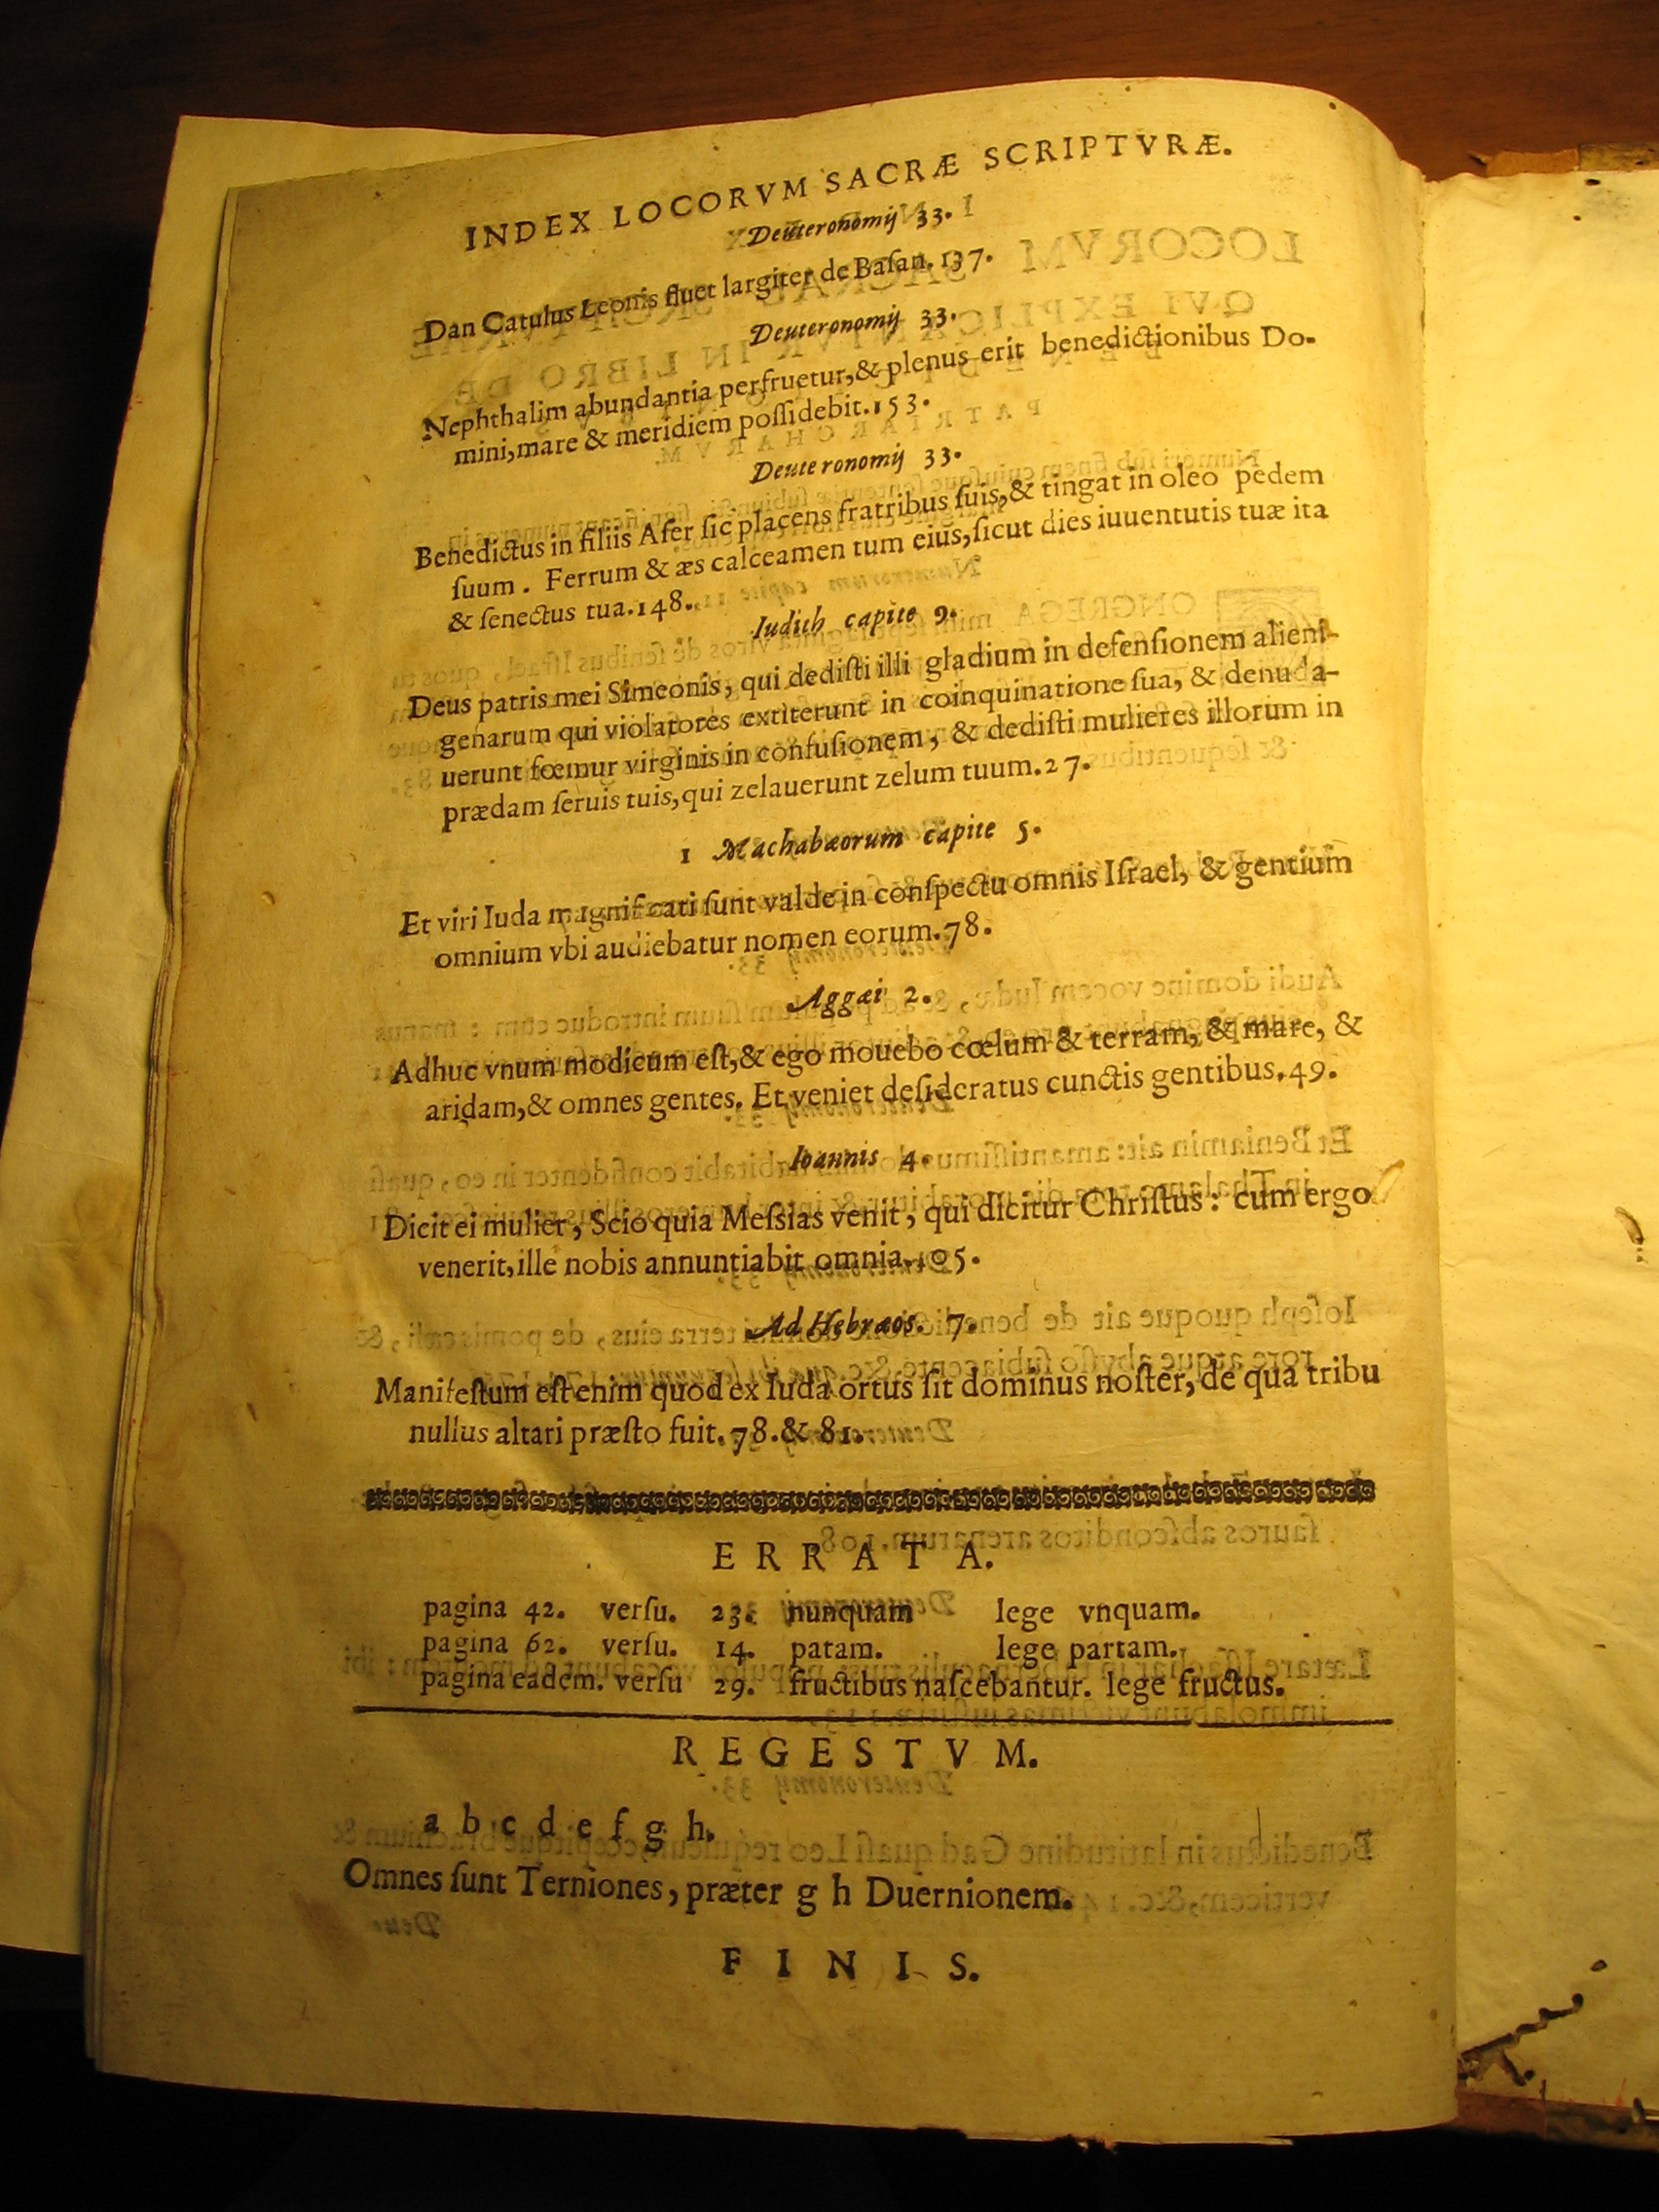 INDEX LOCORVM SACRÆ SCRIPTVRÆ.
Deuteronomij 33.
Dan Catulus Leonis fluet largiter de Baſan. 137.
Deuteronomij 33.
Nephthalim abundantia perfruetur,& plenus erit benedictionibus Do-
mini,mare & meridiem poſſidebit.153.
Deuteronomij 33.
Benedictus in filiis Aſer ſic placens fratribus ſuis,& tingat in oleo pedem
ſuum . Ferrum & æs calceamen tum eius,ſicut dies iuuentutis tuæ ita
& ſenectus tua.148.
Iudith capite 9.
Deus patris mei Simeonis, qui dediſti illi gladium in defenſionem alieni-
genarum qui violatores extiterunt in coinquinatione ſua, & denuda-
uerunt fœmur virginis in confuſionem, & dediſti mulieres illorum in
prædam ſeruis tuis,qui zelauerunt zelum tuum.27.
1 Machabæorum capite 5.
Et viri Iuda magnificati ſunt valde in conſpectu omnis Iſrael, & gentium
omnium vbi audiebatur nomen eorum.78.
Aggæi 2.
Adhuc vnum modicum eſt,& ego mouebo cœlum & terram, & mare, &
aridam,& omnes gentes. Et veniet deſideratus cunctis gentibus.49.
Ioannis 4.
Dicit ei mulier, Scio quia Meſsias venit, qui dicitur Chriſtus: cum ergo
venerit,ille nobis annuntiabit omnia.105.
Ad Hebræos. 7.
Manifeſtum eſt enim quod ex Iuda ortus ſit dominus noſter, de qua tribu
nullus altari præſto fuit. 78.& 81.
ERRATA.
pagina 42. verſu. 23. nunquam lege vnquam.
pagina 62. verſu. 14. patam. lege partam.
pagina eadem. verſu 29. fructibus naſcebantur. lege fructus.
REGESTVM.
a b c d e f g h.
Omnes ſunt Terniones, præter g h Duernionem.
FINIS.